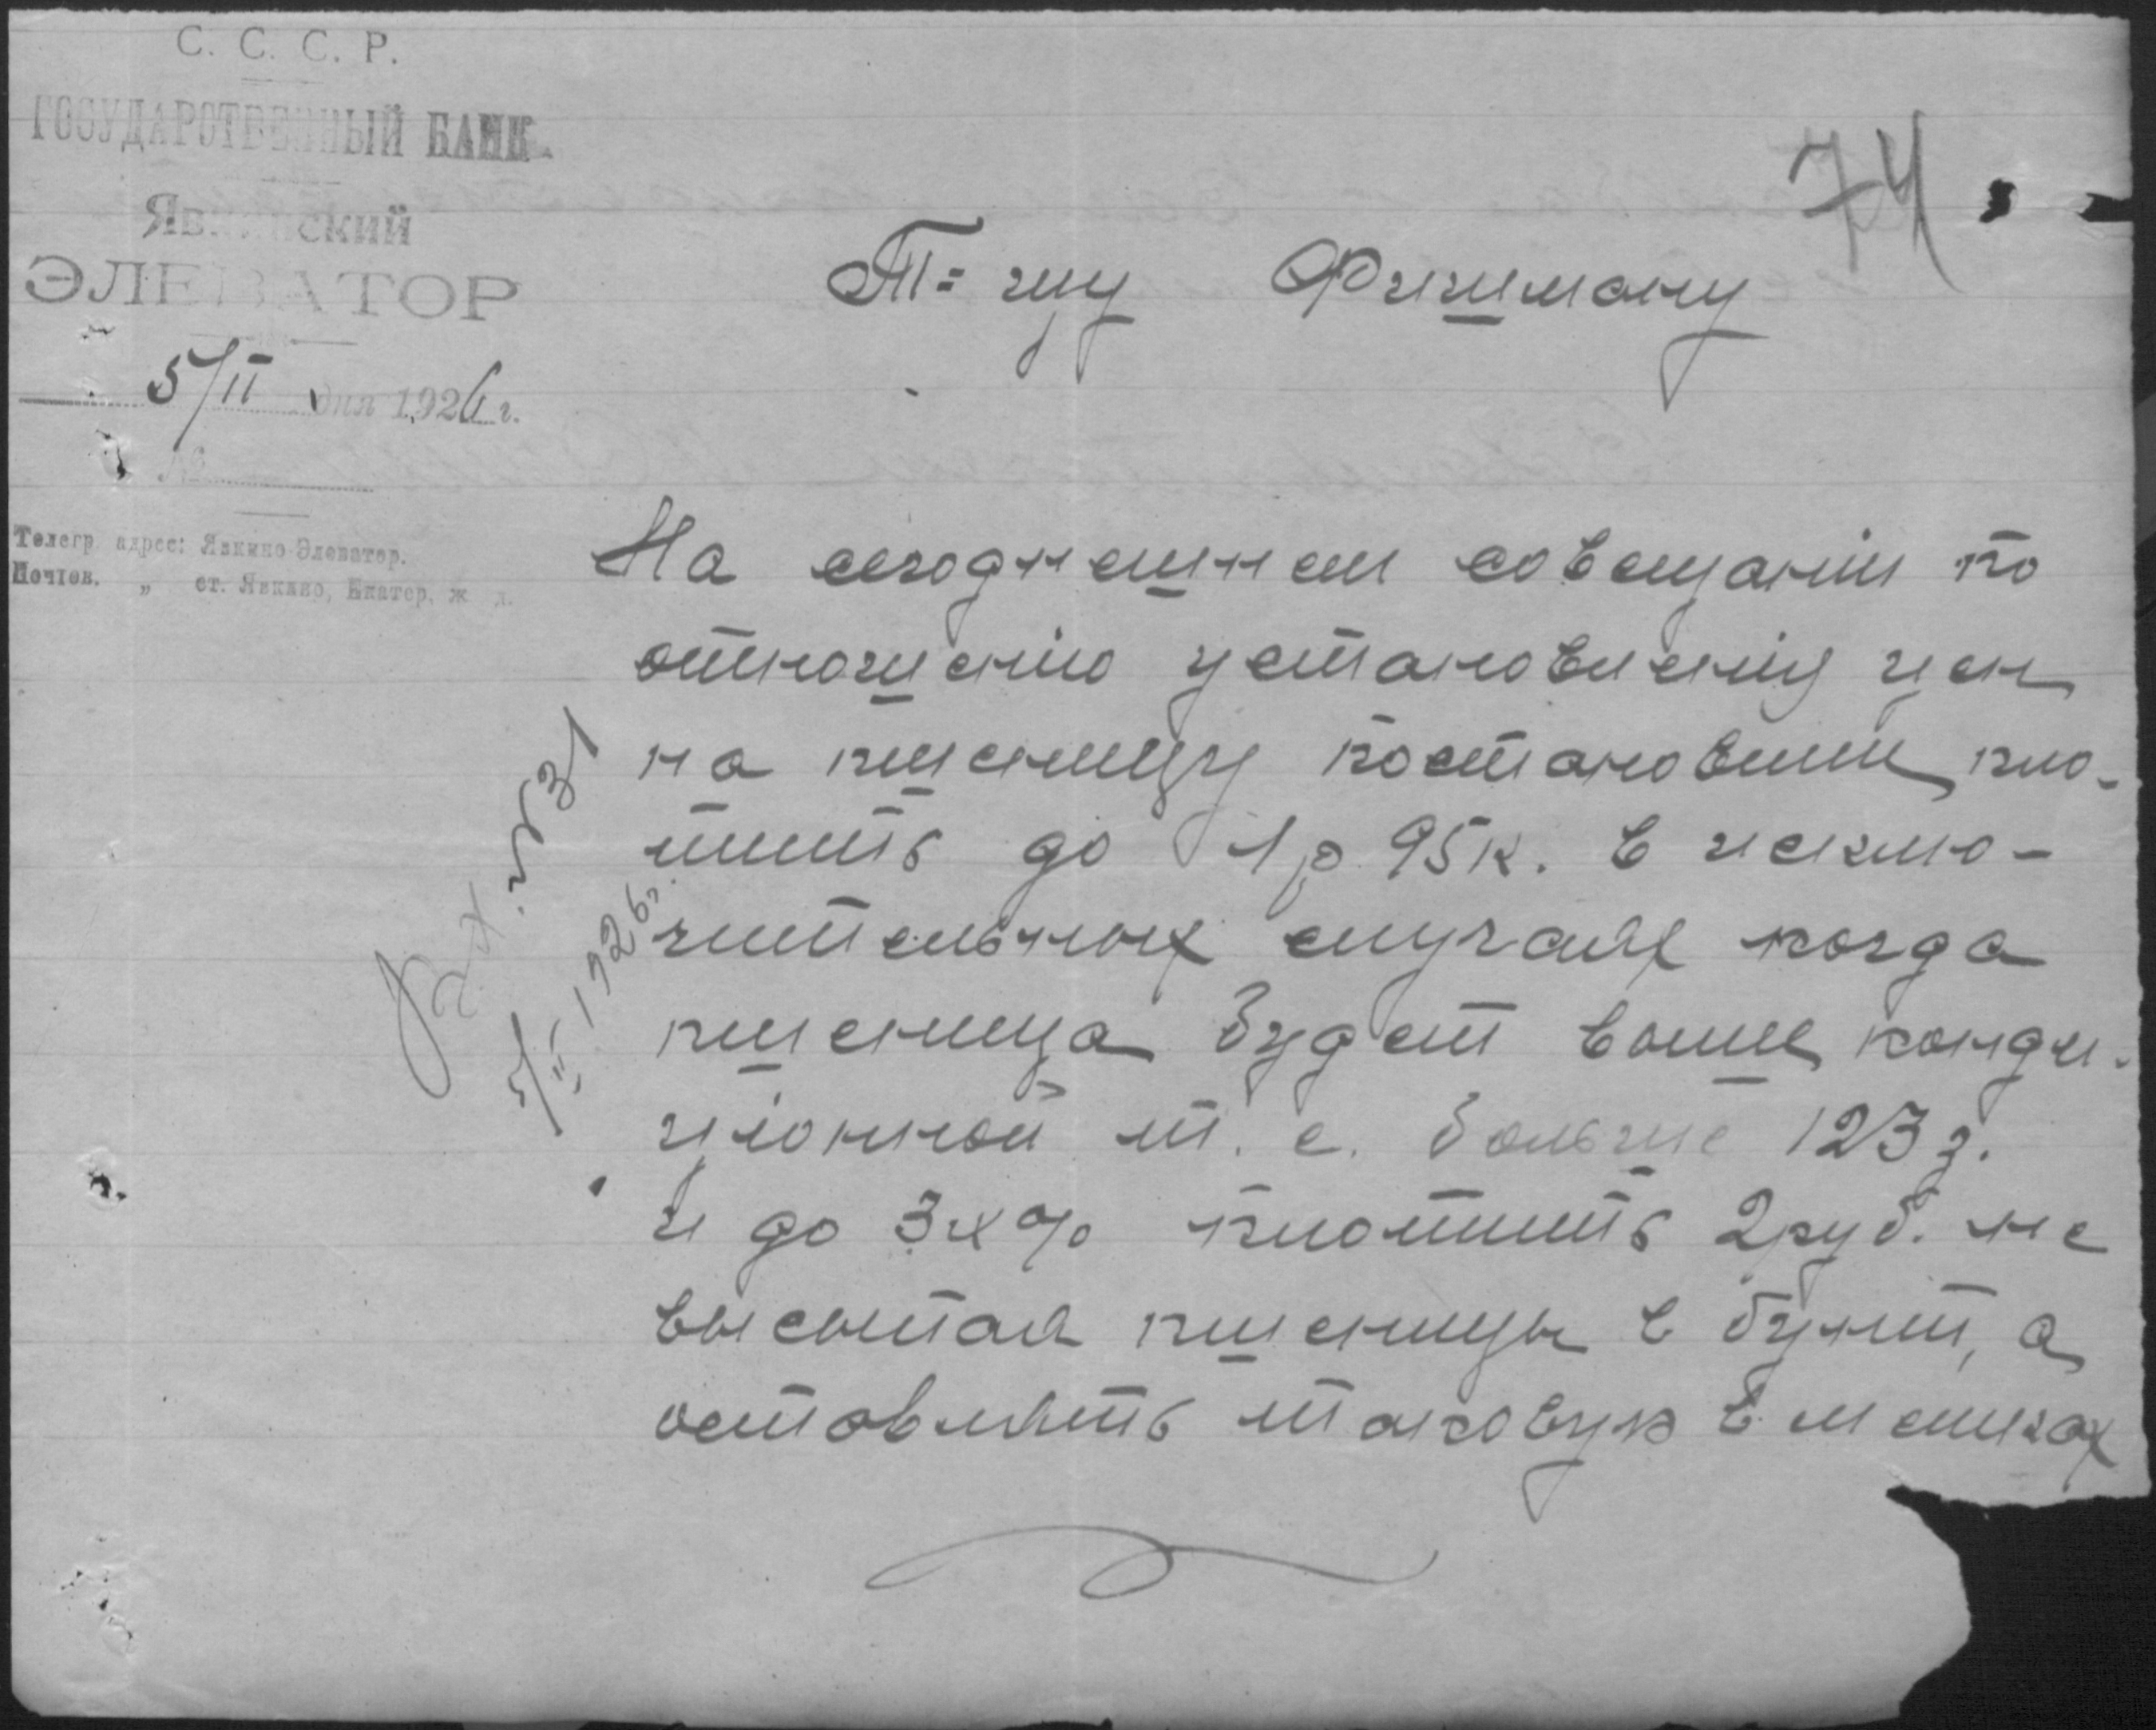 С. С. С. Р.
ГОСУДАРСТВЕННЫЙ БАНК.
Явкинский
ЭЛЕВАТОР
5/II дня 1926 г.
№
Телегр. адрес: Явкино-Элеватор.
Почтов. „ ст. Явкино, Екатер. ж. д.
74
Т-щу Фишману
На сегоднешнем совещаніи по
отношенію установленія цен
на пшеницу постановили пло-
тить до 1р 95к. в исклю-
чительных случаях когда
пшеница будет выше конди-
ціонной т. е. больше 123 з.
и до 3х % плотить 2 руб. не
высыпая пшеницы в бунт, а
оставлять таковую в мешках
Вх. № 31
5/II 1926 г.